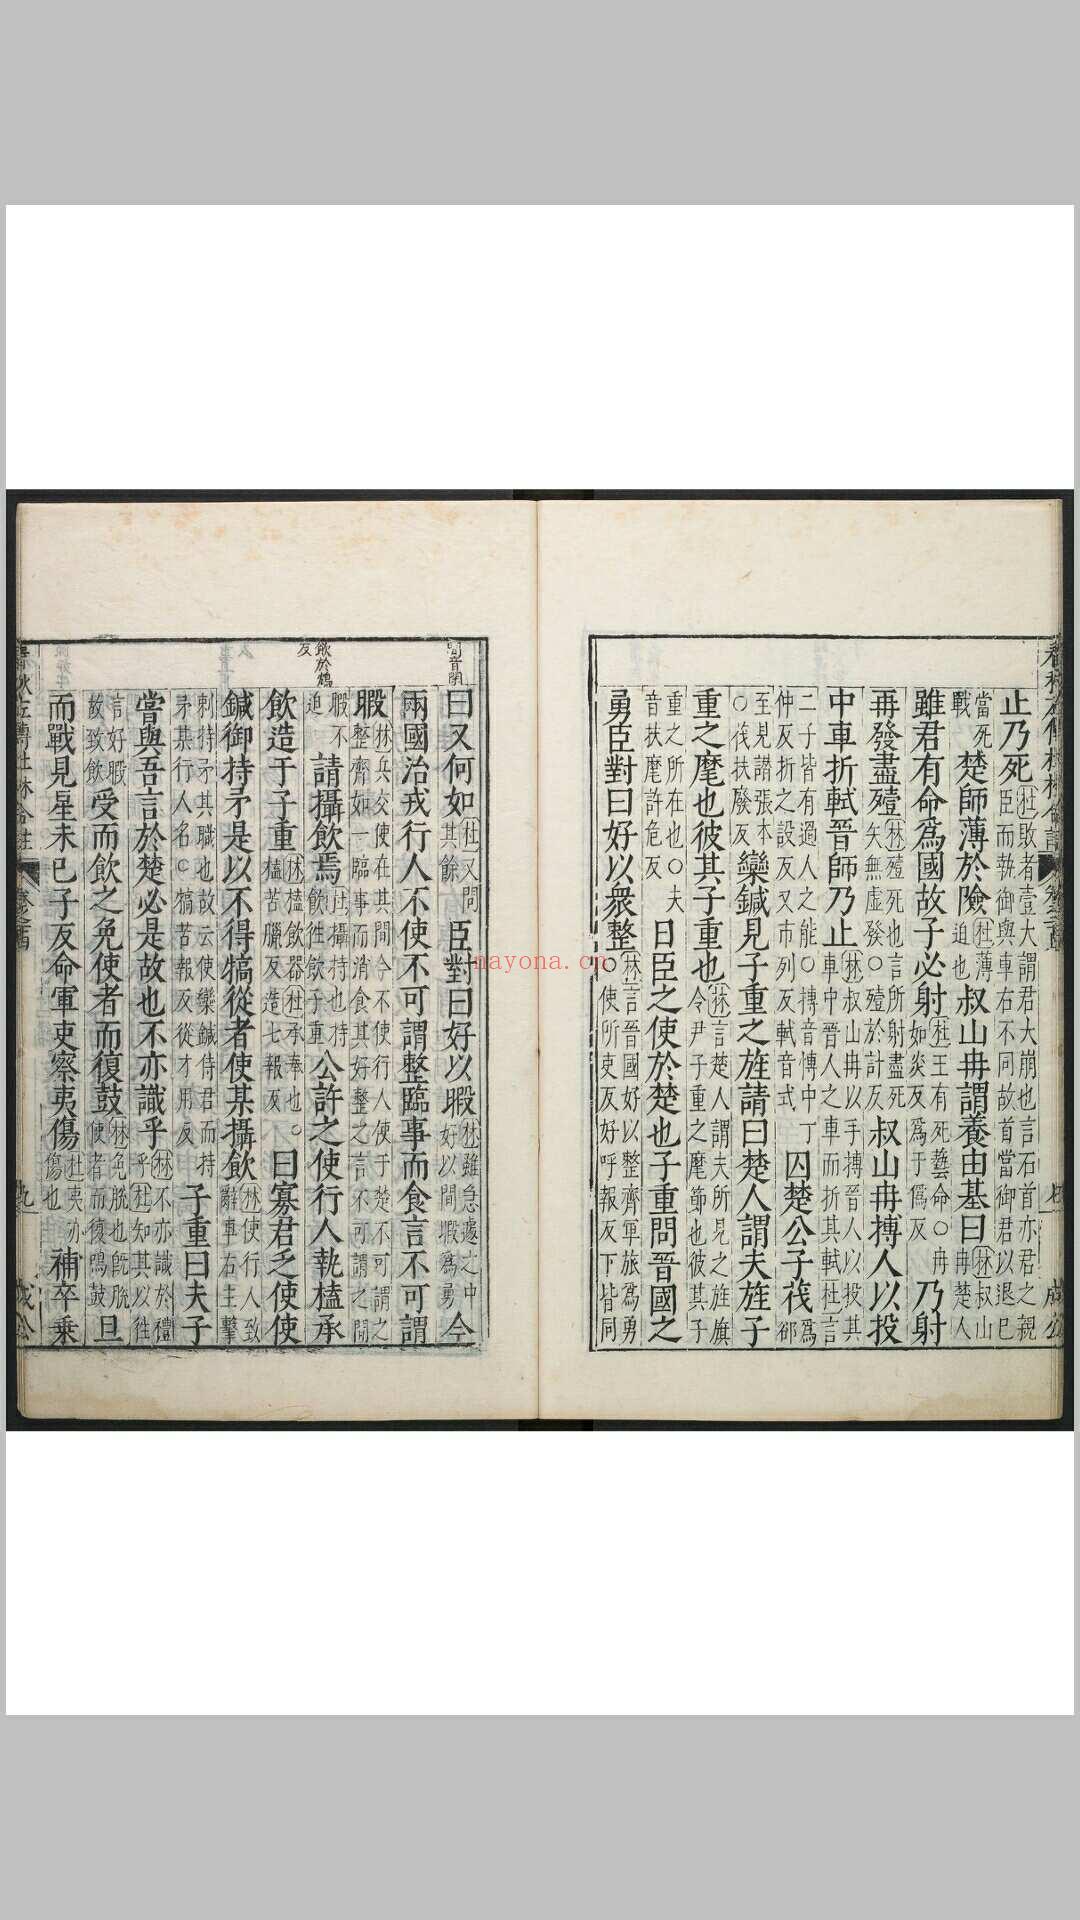 止乃死杜敗者壹大謂君大崩也言石首亦君之親臣而執御與車右不同故首當御君以退己
當死戰楚師薄於險杜薄迫也叔山冉謂養由基曰林叔山冉楚人
雖君有命爲國故子必射杜王有死藝命○冉如炎反爲于僞反乃射
再發盡殪林殪死也言所射盡死矢無虛發○殪於計反叔山冉搏人以投
中車折軾晉師乃止林叔山冉以手搏晉人以投其車中晉人之車而折其軾杜言
二子皆有過人之能○搏音博中丁仲反折之設反又市列反軾音式囚楚公子茷爲郤
至見譖張本○茷扶廢反欒鍼見子重之旌請曰楚人謂夫旌子
重之麾也彼其子重也林言楚人謂夫所見之旌旗令尹子重之麾節也彼其子
重之所在也○夫音扶麾許危反日臣之使於楚也子重問晉國之
勇臣對曰好以衆整林言晉國好以整齊軍旅爲勇○使所吏反好呼報反下皆同
曰又何如杜又問其餘臣對曰好以暇林雖急遽之中好以閒暇爲勇今
閒音閑
兩國治戎行人不使不可謂整臨事而食言不可謂
暇林兵交使在其間今不使行人使于楚不可謂之整齊如一臨事而消食其好整之言不可謂之閒
暇不迫請攝飲焉杜攝持也持飲往飮子重公許之使行人執榼承
飲於鴆反
飲造于子重林榼飲器杜承奉也○榼苦臘反造七報反曰寡君乏使使
鍼御持矛是以不得犒從者使某攝飲林使行人致辭車右主擊
刺持矛其職也故云使欒鍼侍君而持矛某行人名○犒苦報反從才用反子重曰夫子
嘗與吾言於楚必是故也不亦識乎林不亦識於禮乎杜知其以往
言好暇故致飲受而飲之免使者而復鼓林免脫也旣脫使者而復鳴鼓旦
而戰見星未已子反命軍吏察夷傷杜夷亦傷也補卒乗
九
成公